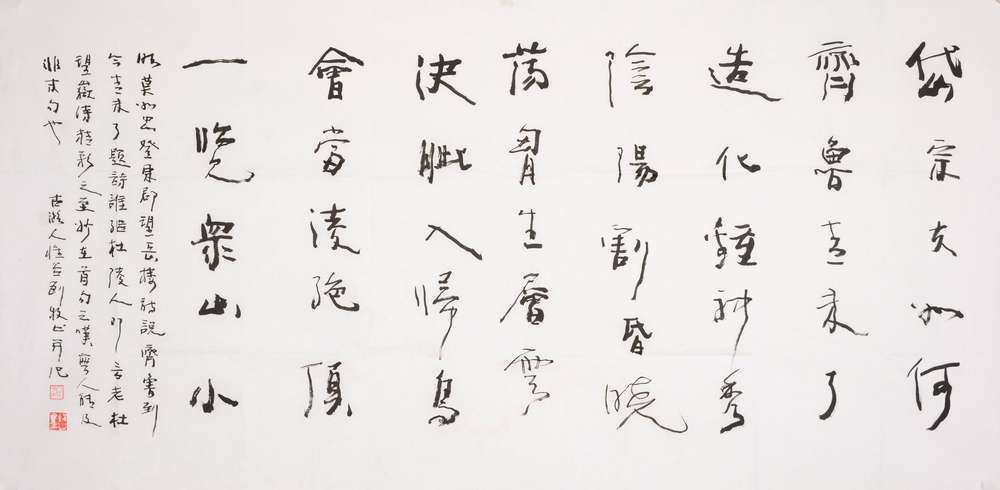 岱宗夫如何
齊魯青未了
造化鍾神秀
陰陽割昏曉
蕩胷生層雲
決眦入歸鳥
會當凌絕頂
一覽衆山小
明莫如忠登東郡望岳樓詩説齊魯到
今青未了題詩誰繼杜陵人即言老杜
望嶽傳精彩之至妙在首句之嘆無人能及
非末句也